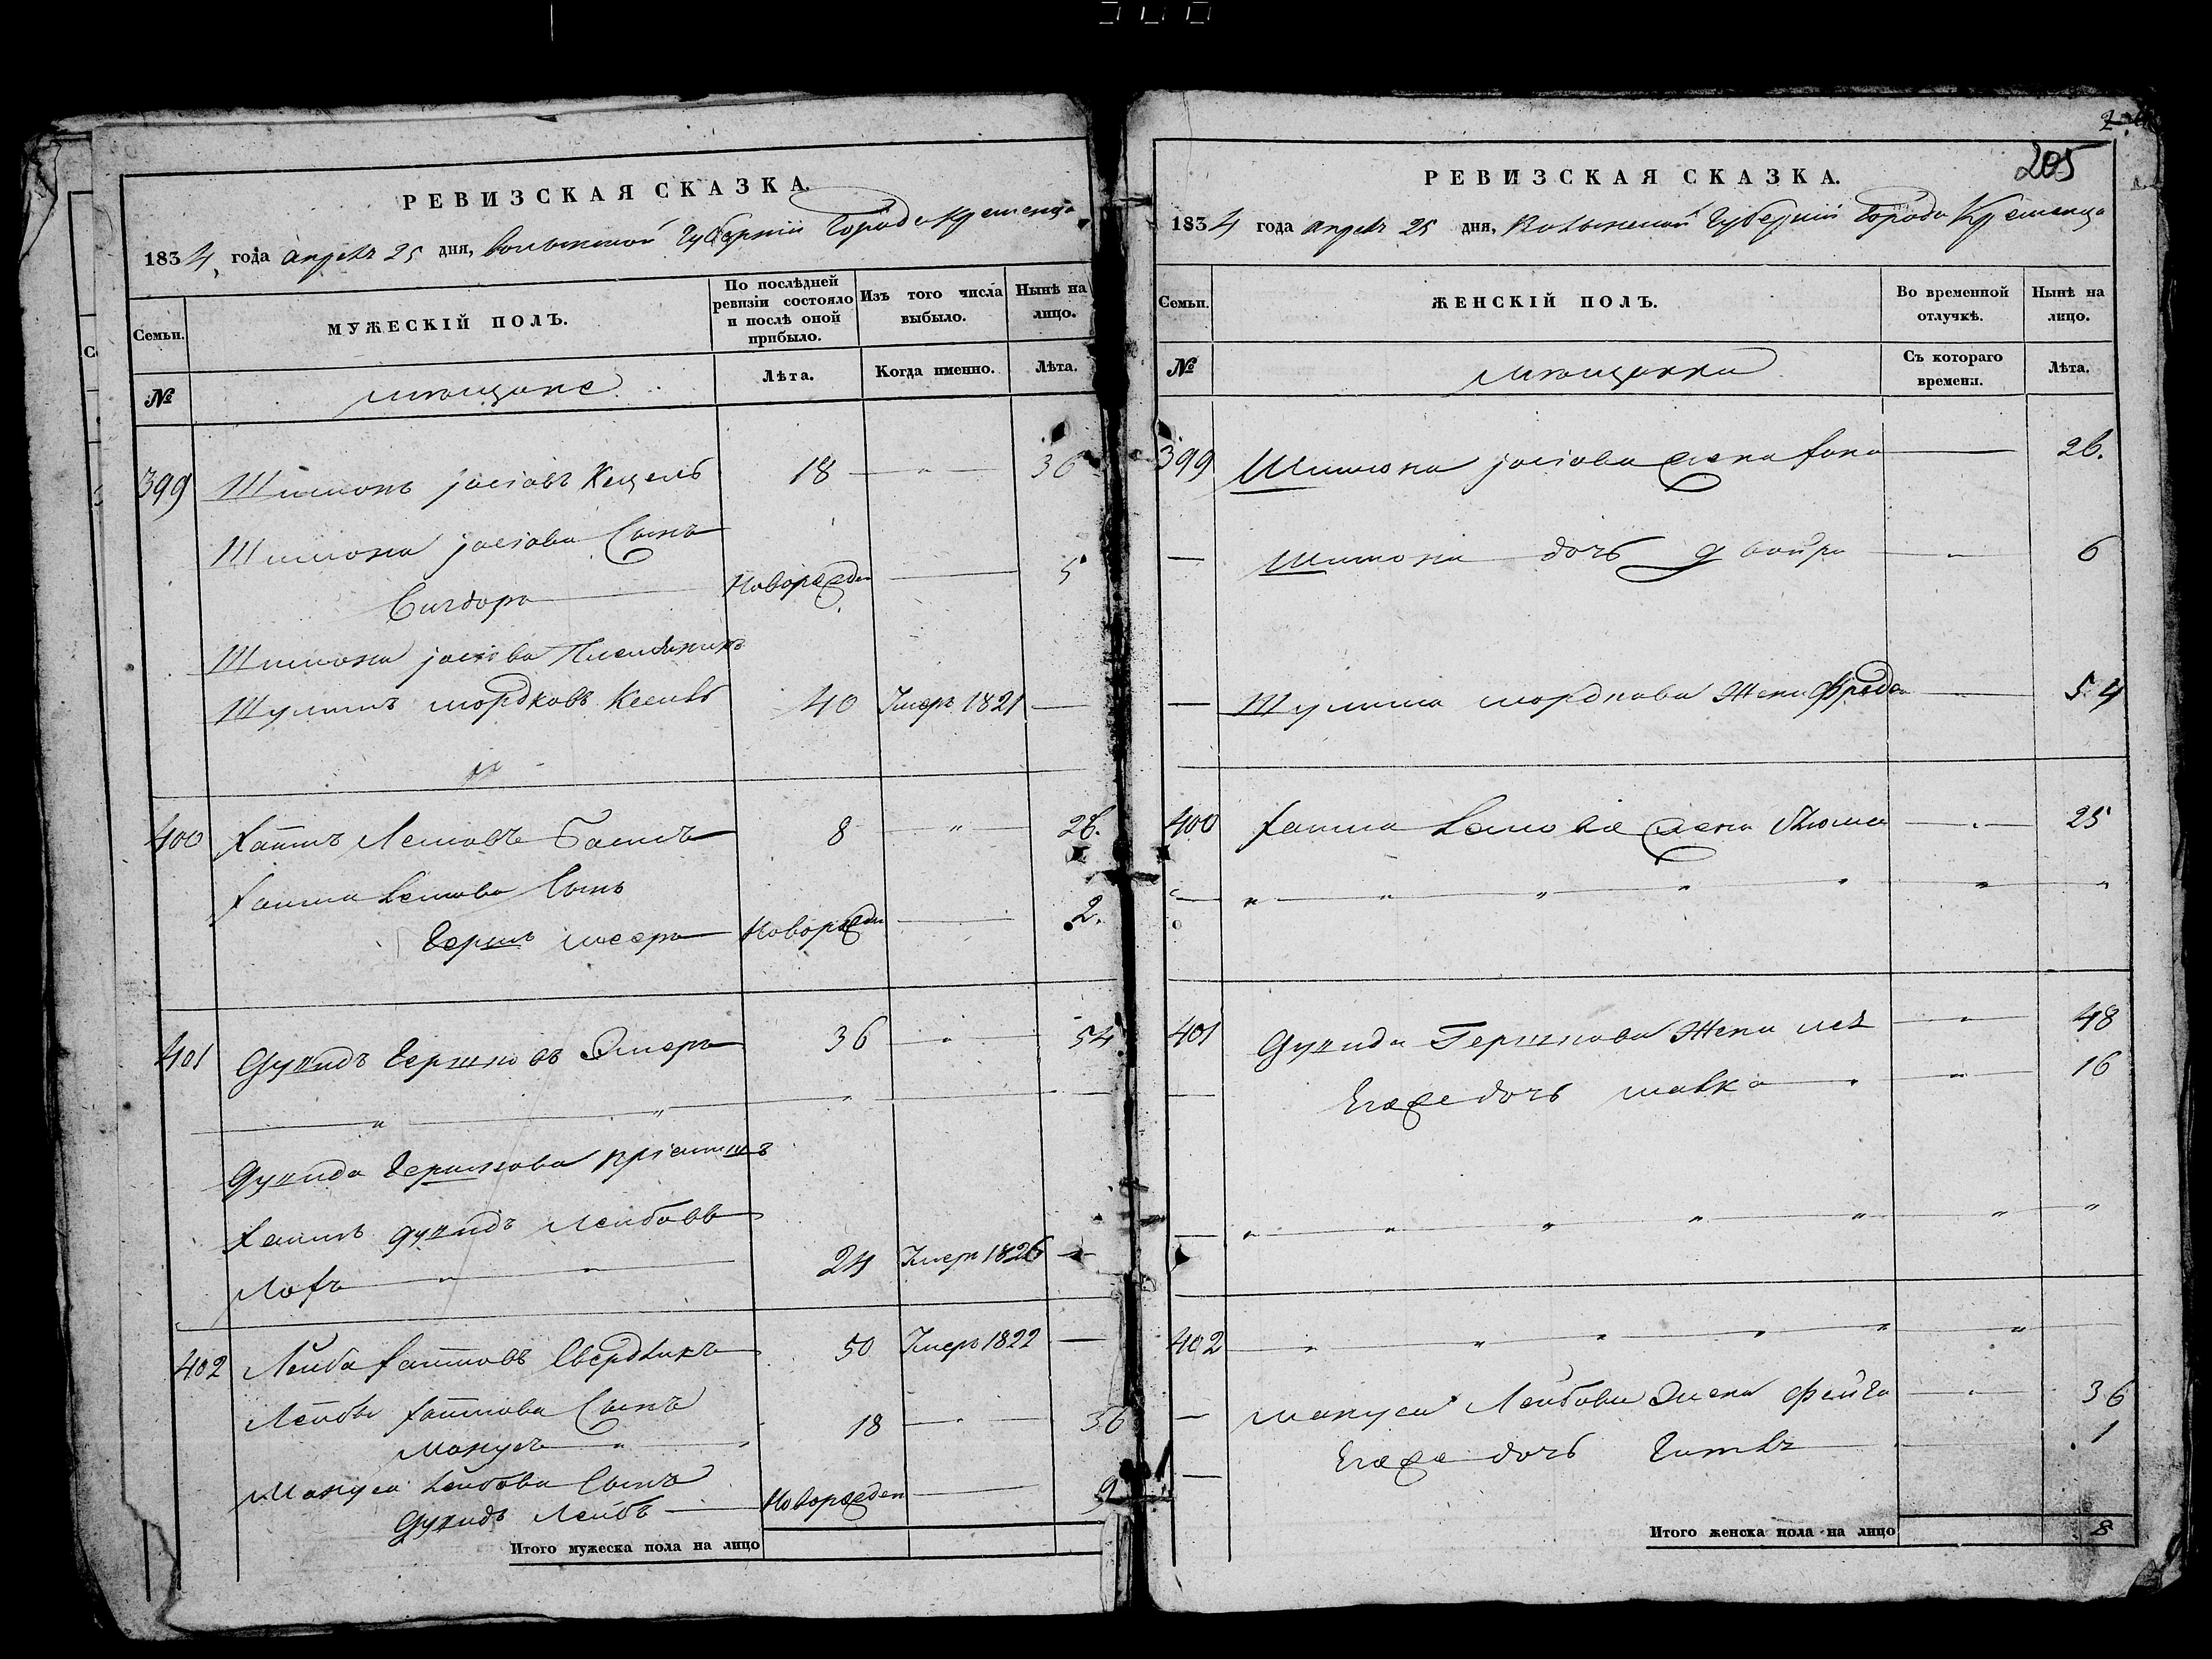 РЕВИЗСКАЯ СКАЗКА.
1834 года апреля 25 дня, Волынской Губернии Города Кременца
Семьи.
МУЖЕСКІЙ ПОЛЪ.
По послѣдней ревизіи состояло и послѣ оной прибыло.
Изъ того числа выбыло.
Нынѣ на лицо.
№
мещане
Лѣта.
Когда именно.
Лѣта.
399 Шимонъ Іосіовъ 18 36
Шимона Іосіова Сынъ
Новорожден 5
Шимона Іосіова Племяникъ
Шулимъ Мордковъ 40 Умеръ 1821
400 Хаимъ 8 26.
Хаима Сынъ
Герш Мееръ Новорожден 2.
401 Дувидъ Гершковъ 36 54
Дувида Гершкова
Хаимъ Дувидъ Лейбовъ
24 Умеръ 1826
402 Лейба Хаимовъ Свердликъ 50 Умеръ 1822
Лейбы Хаимова Сынъ
Манусъ 18 36
Мануса Лейбова Сынъ
Дувидъ Лейбъ Новорожден 9
Итого мужеска пола на лицо
205
РЕВИЗСКАЯ СКАЗКА.
1834 года апреля 25 дня, Волынской Губерніи Города Кременца
Семьи.
ЖЕНСКІЙ ПОЛЪ.
Во временной отлучкѣ.
Нынѣ на лицо.
№
мещанки
Съ котораго времени.
Лѣта.
399 Шимона Іосіова жена Хана 26.
Шимона дочь Двойра 6
Шулима Мордкова Жена Фрейда 54
400 Хаима жена 25
401 Дувида Гершкова Жена Лея 48
Его же дочь Малка 16
402
Мануса Лейбова жена Фейга 36
Его же дочь Гитля 1
Итого женска пола на лицо 8